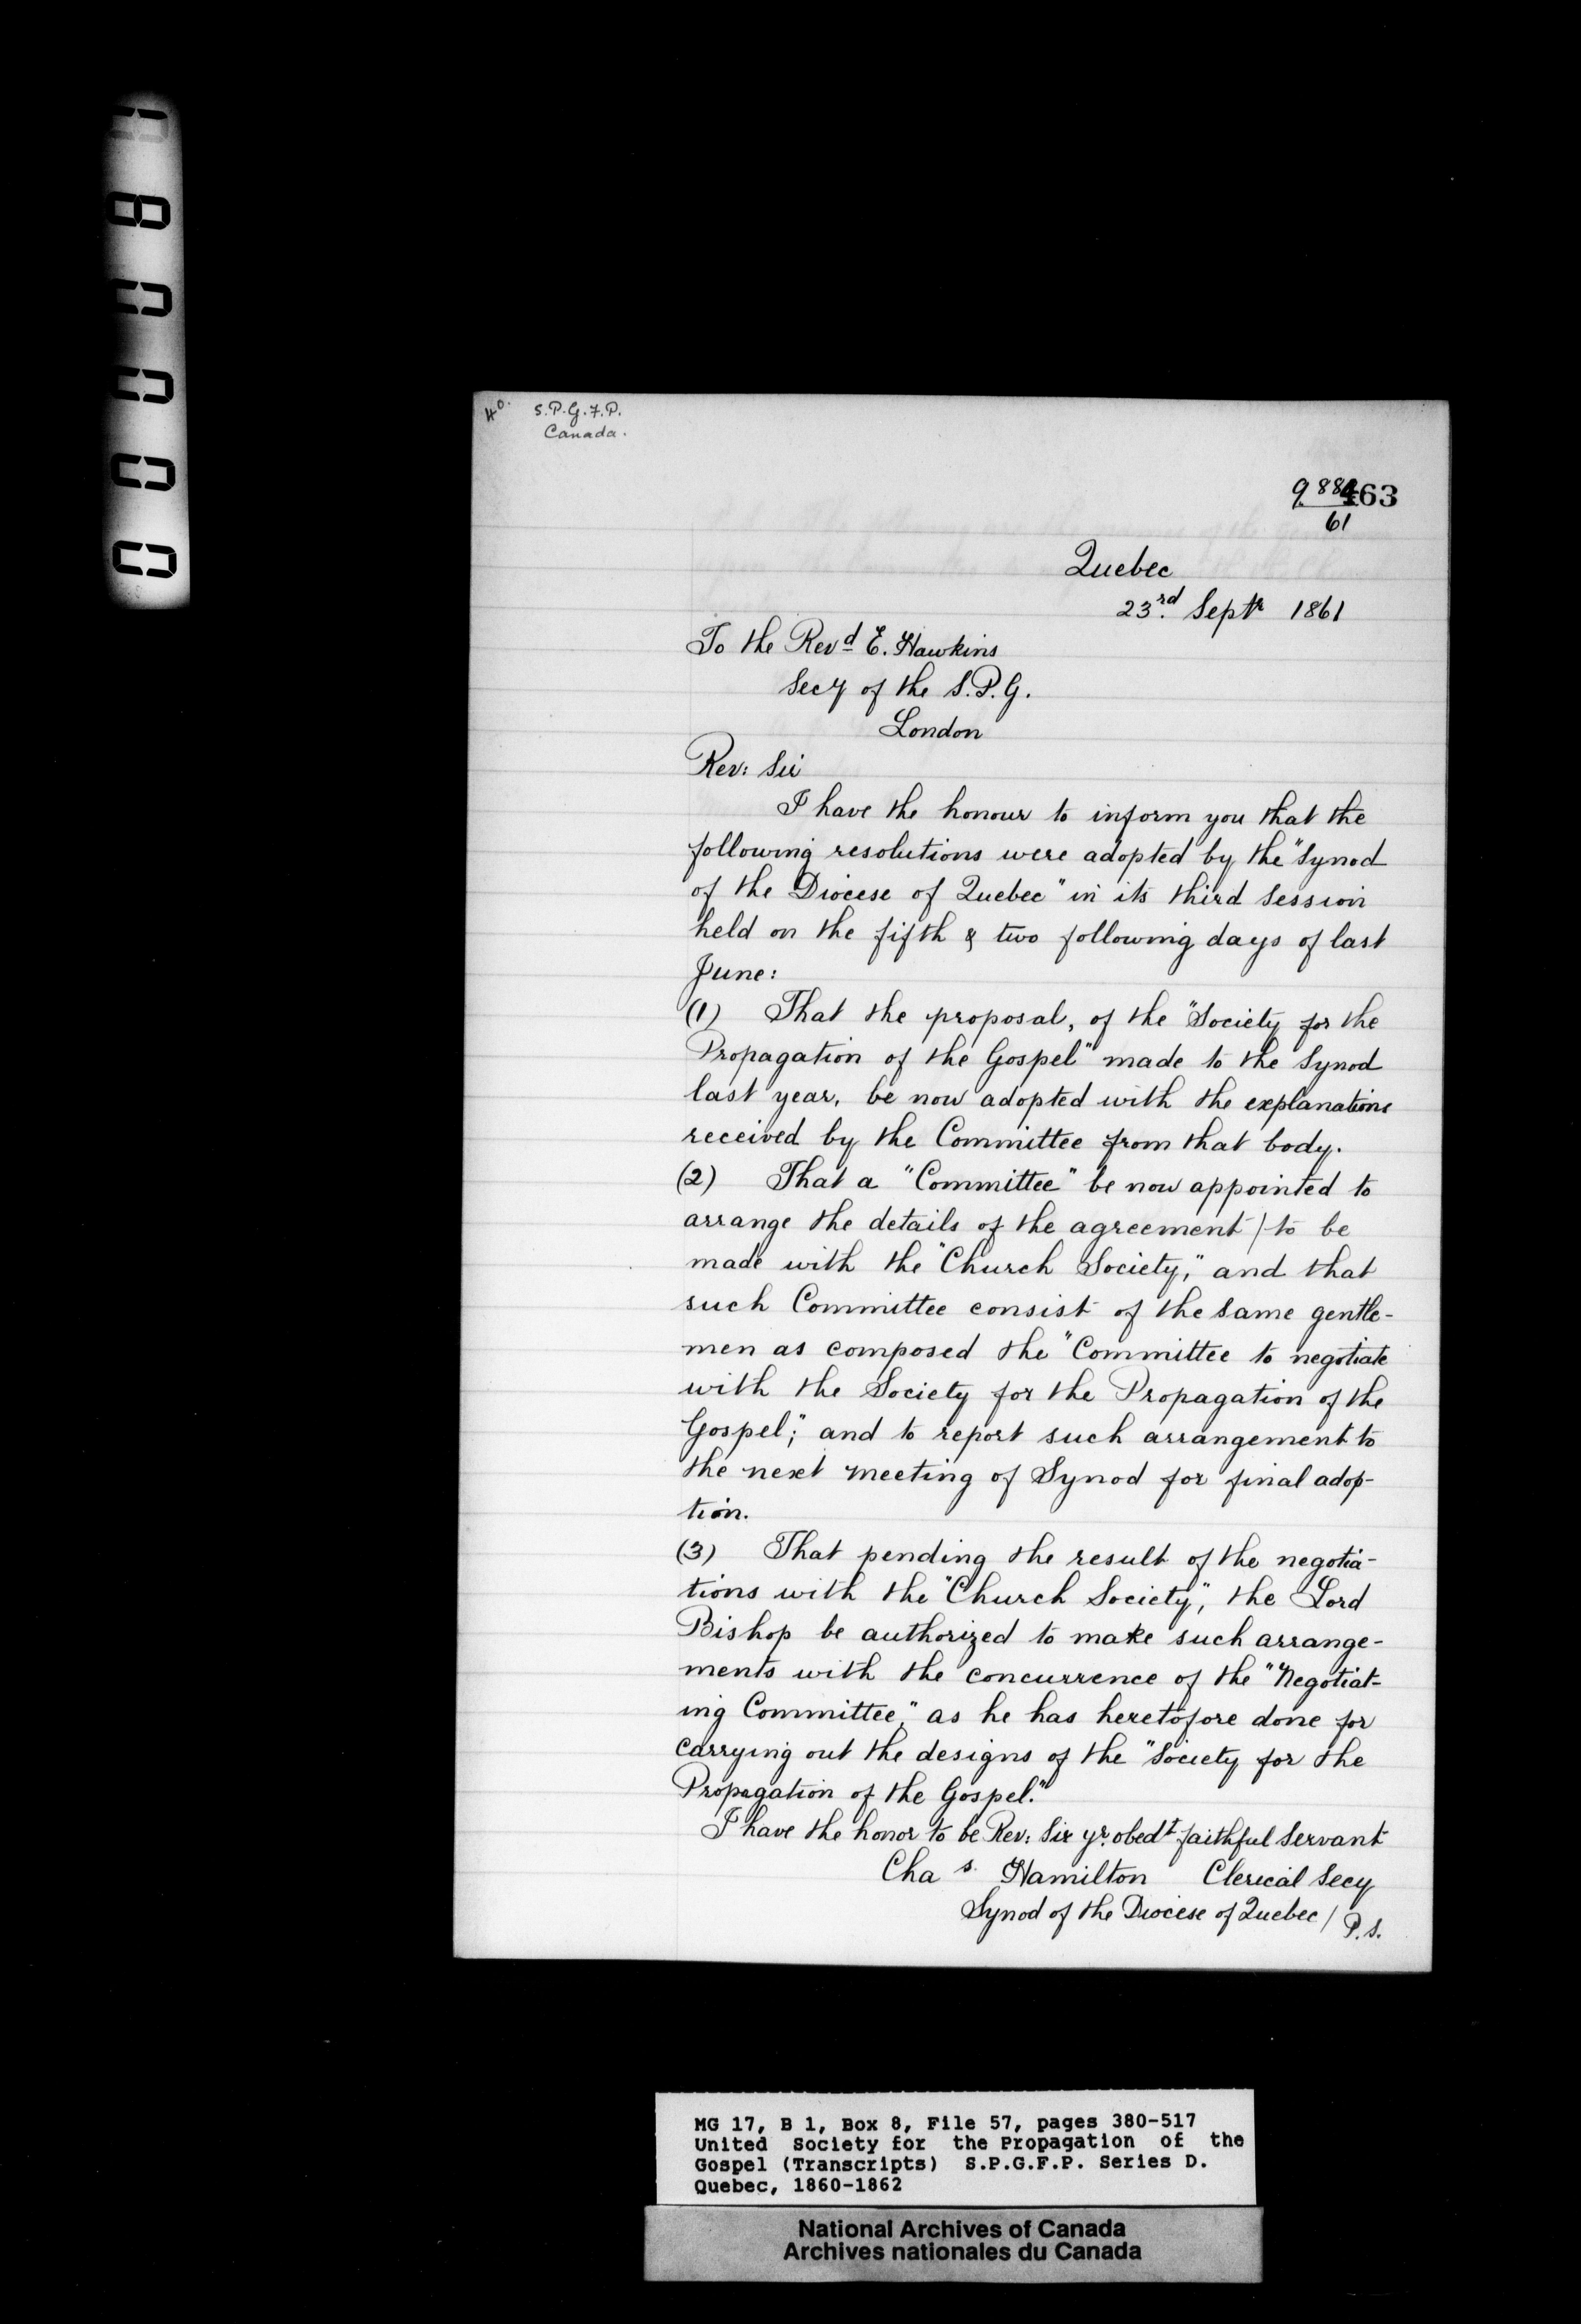 40. S.P.G.F.P.
Canada.
463
61
Quebec
23rd. Septr 1861
To the Revd E. Hawkins
Secy of the S.P.G.
London
Rev: Sir
I have the honour to inform you that the
following resolutions were adopted by the "Synod
of the Diocese of Quebec" in its third session
held on the fifth & two following days of last
June:
(1) That the proposal, of the "Society for the
Propagation of the Gospel" made to the Synod
last year, be now adopted with the explanations
received by the Committee from that body.
(2) That a "Committee" be now appointed to
arrange the details of the agreement / to be
made with the "Church Society," and that
such Committee consist of the same gentle-
men as composed the "Committee to negotiate
with the Society for the Propagation of the
Gospel"; and to report such arrangement to
the next meeting of Synod for final adop-
tion.
(3) That pending the result of the negotia-
tions with the "Church Society", the Lord
Bishop be authorized to make such arrange-
ments with the concurrence of the "Negotiat-
ing Committee," as he has heretofore done for
carrying out the designs of the "Society for the
Propagation of the Gospel."
I have the honor to be Rev: Sir yr. obedt faithful Servant
Chas. Hamilton Clerical Secy
Synod of the Diocese of Quebec / P.S.
MG 17, B 1, Box 8, File 57, pages 380-517
United Society for the Propagation of the
Gospel (Transcripts) S.P.G.F.P. Series D.
Quebec, 1860-1862
National Archives of Canada
Archives nationales du Canada